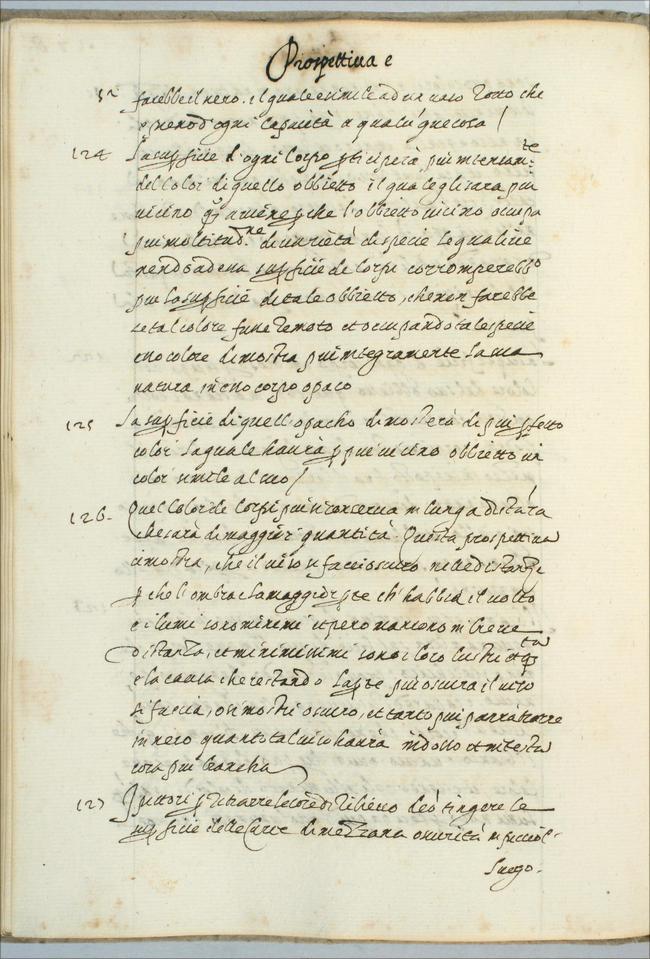 Prospettiva e
farebbe il nero. il quale e simile ad un vaso rotto che
d'ogni capacità a qualunque cosa
124 La superficie d'ogni corpo participerà piu intensamte
del color di quello obbietto il quale gli sara piu
vicino, perche l'obbietto vicino occupa
piu moltitudne di varietà di specie le quali ve
nendo ad essa superficie de corpi corromperebbo
piu la superficie di tale obbietto, che non farebbe
se tal colore fusse remoto et occupando tale spetie
esso colore dimostra piu integramente la sua
natura in esso corpo opaco
125 La superficie di quell opacho dimosterà di piu perfetto
color la quale havrà per piu vicino obbietto un
color simile al suo
126. Quel color de corpi piu si conserva in lunga distātia
che sarà di maggior quantità. Questa prospettiva
ci mostra, che il viso si faccia scuro nelle distanze
perche l'ombra è la maggior parte ch' habbia il volto
e i lumi sono minimi et pero mancano in breve
distanza, et minimissimi sono i loro lustri et qsta
e la causa che restando la parte piu oscura il viso
si faccia, o si mostri oscuro, et tanto piu parrà trarre
in nero quanto tal viso havrà in dosso et in testa
cosa piu biancha
127 I pittori per ritrarre le cose di rilievo deō tingere le
superficie delle carte di mezzana oscurità